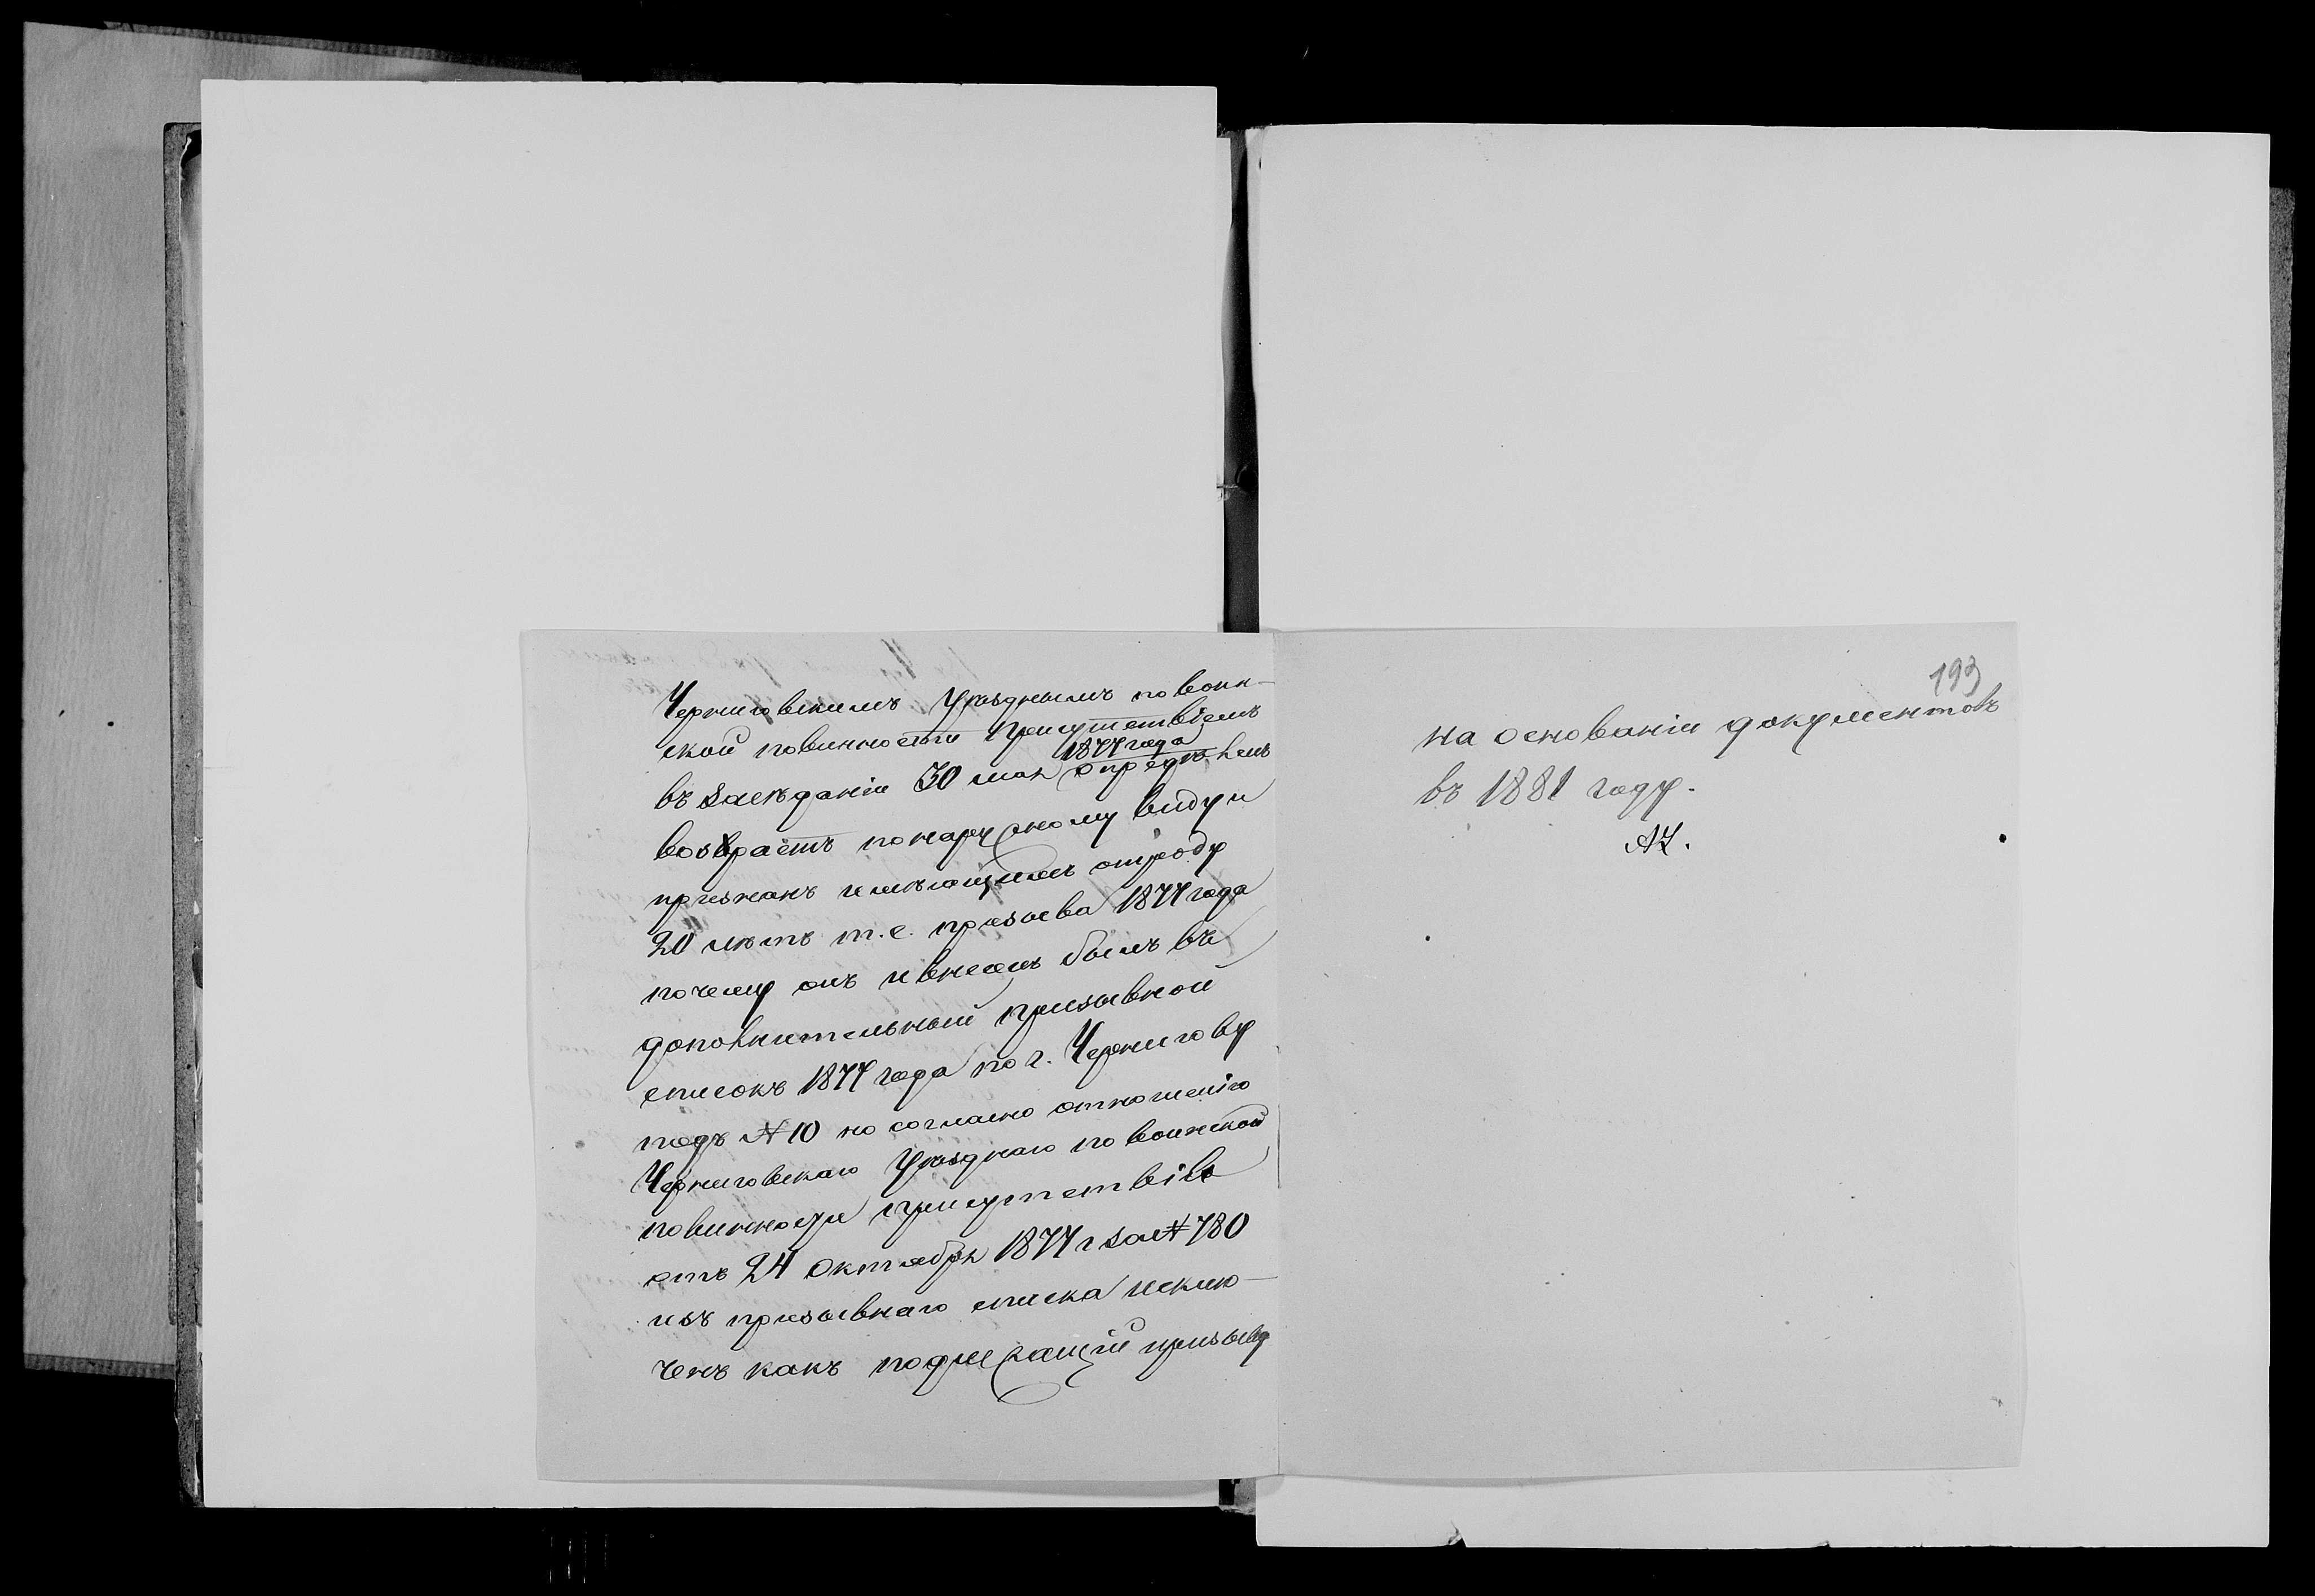 Черниговскимъ Уѣзднымъ по воин-
ской повинности Присутствіемъ
въ засѣданіи 30 мая 1877 года опредѣленъ
возврастъ по наружному виду и
признанъ имѣющимъ отроду
20 лѣтъ т.е. призыва 1877 года
почему онъ и внесенъ былъ въ
дополнительный призывной
списокъ 1877 года по г. Чернигову
подъ № 10 но согласно отношенію
Черниговскаго Уѣзднаго по воинской
повинности присутствія
отъ 24 Октября 1877 г за № 780
изъ призывнаго списка исклю-
ченъ какъ подлежащій призыву
193
на основаніи документовъ
въ 1881 году.